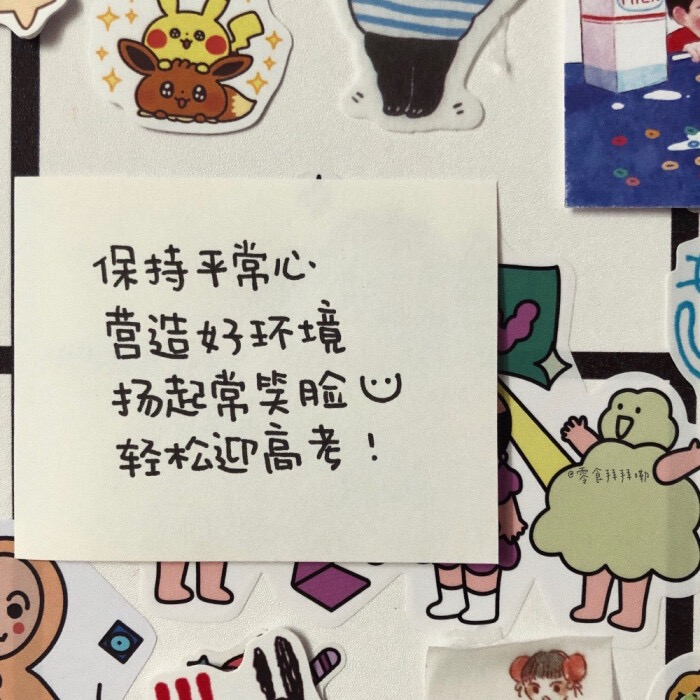 保持平常心
营造好环境
扬起常笑脸
轻松迎高考！
@零食拜拜嘞